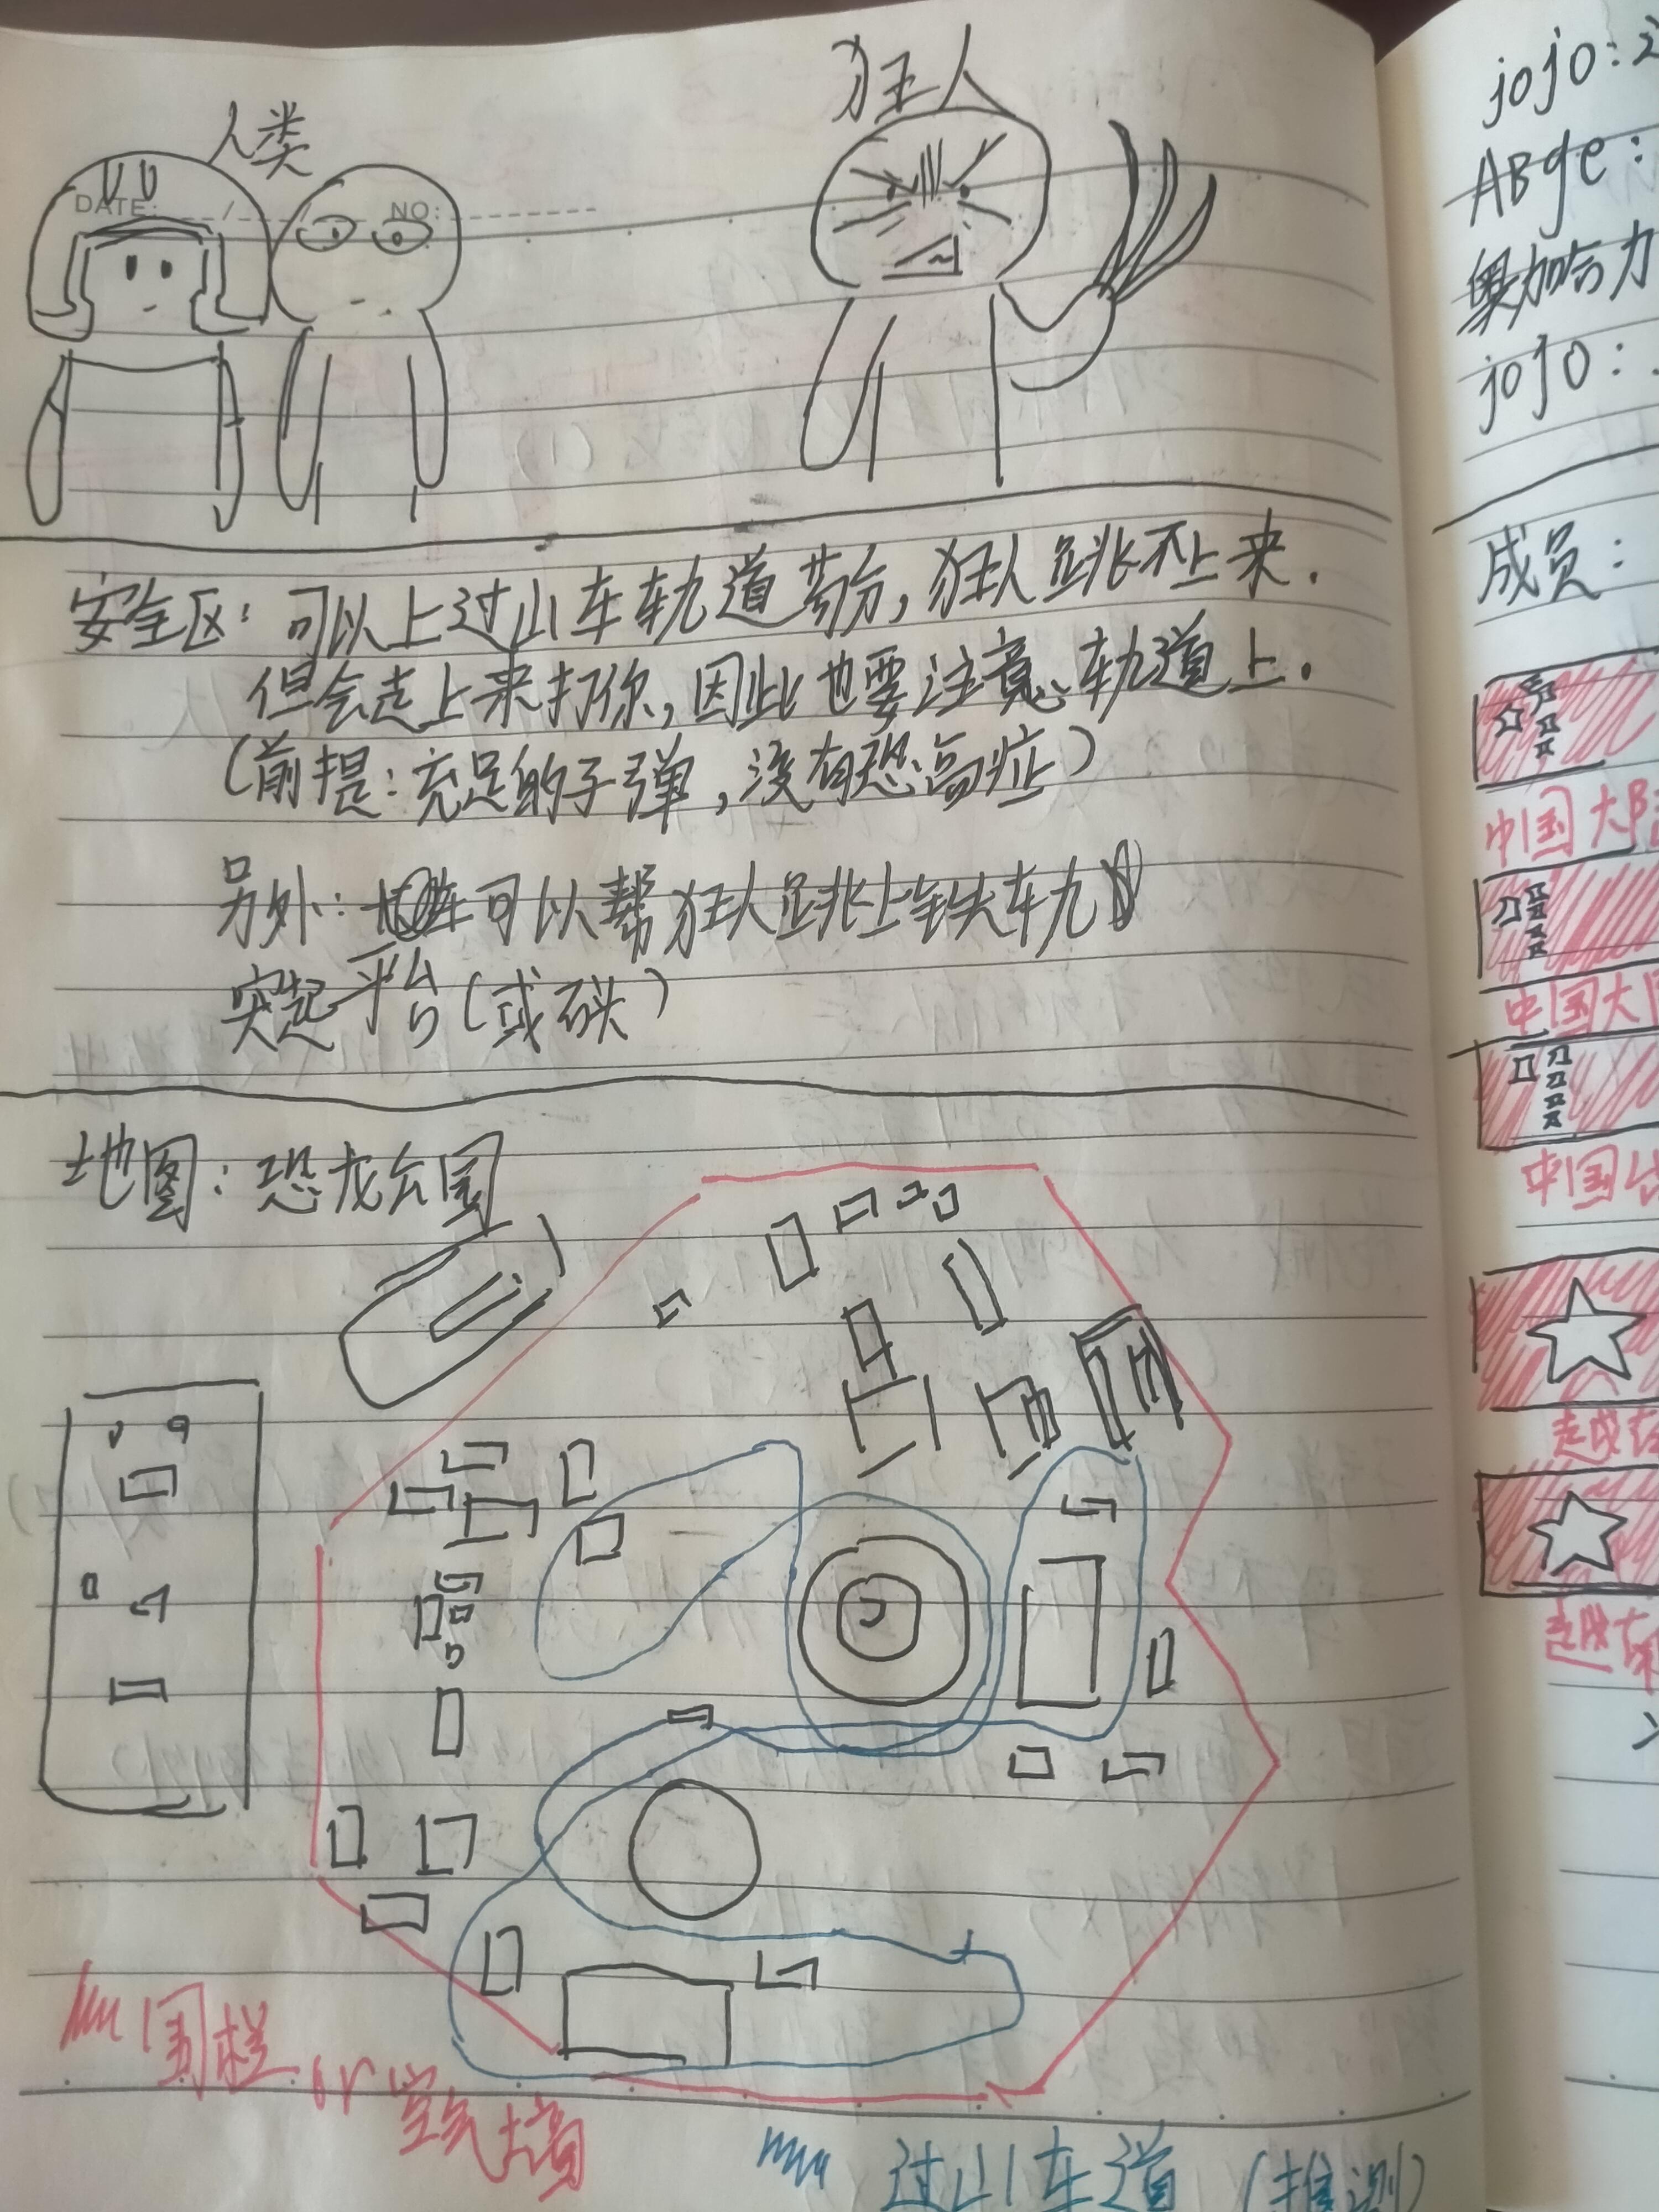 人类
狂人
DATE: / / NO:
安全区:可以上过山车轨道苟,狂人跳不上来.
但会走上来打你,因此也要注意轨道上.
(前提:充足的子弹,没有恐高症)
另外:可以帮狂人跳上铁车九
突起平台(或石头)
地图:恐龙公园
围栏or空气墙
过山车道(推测)
jojo:
ABge:
奥加吉力
jojo:
成员:
中国大陆
中国大
中国台